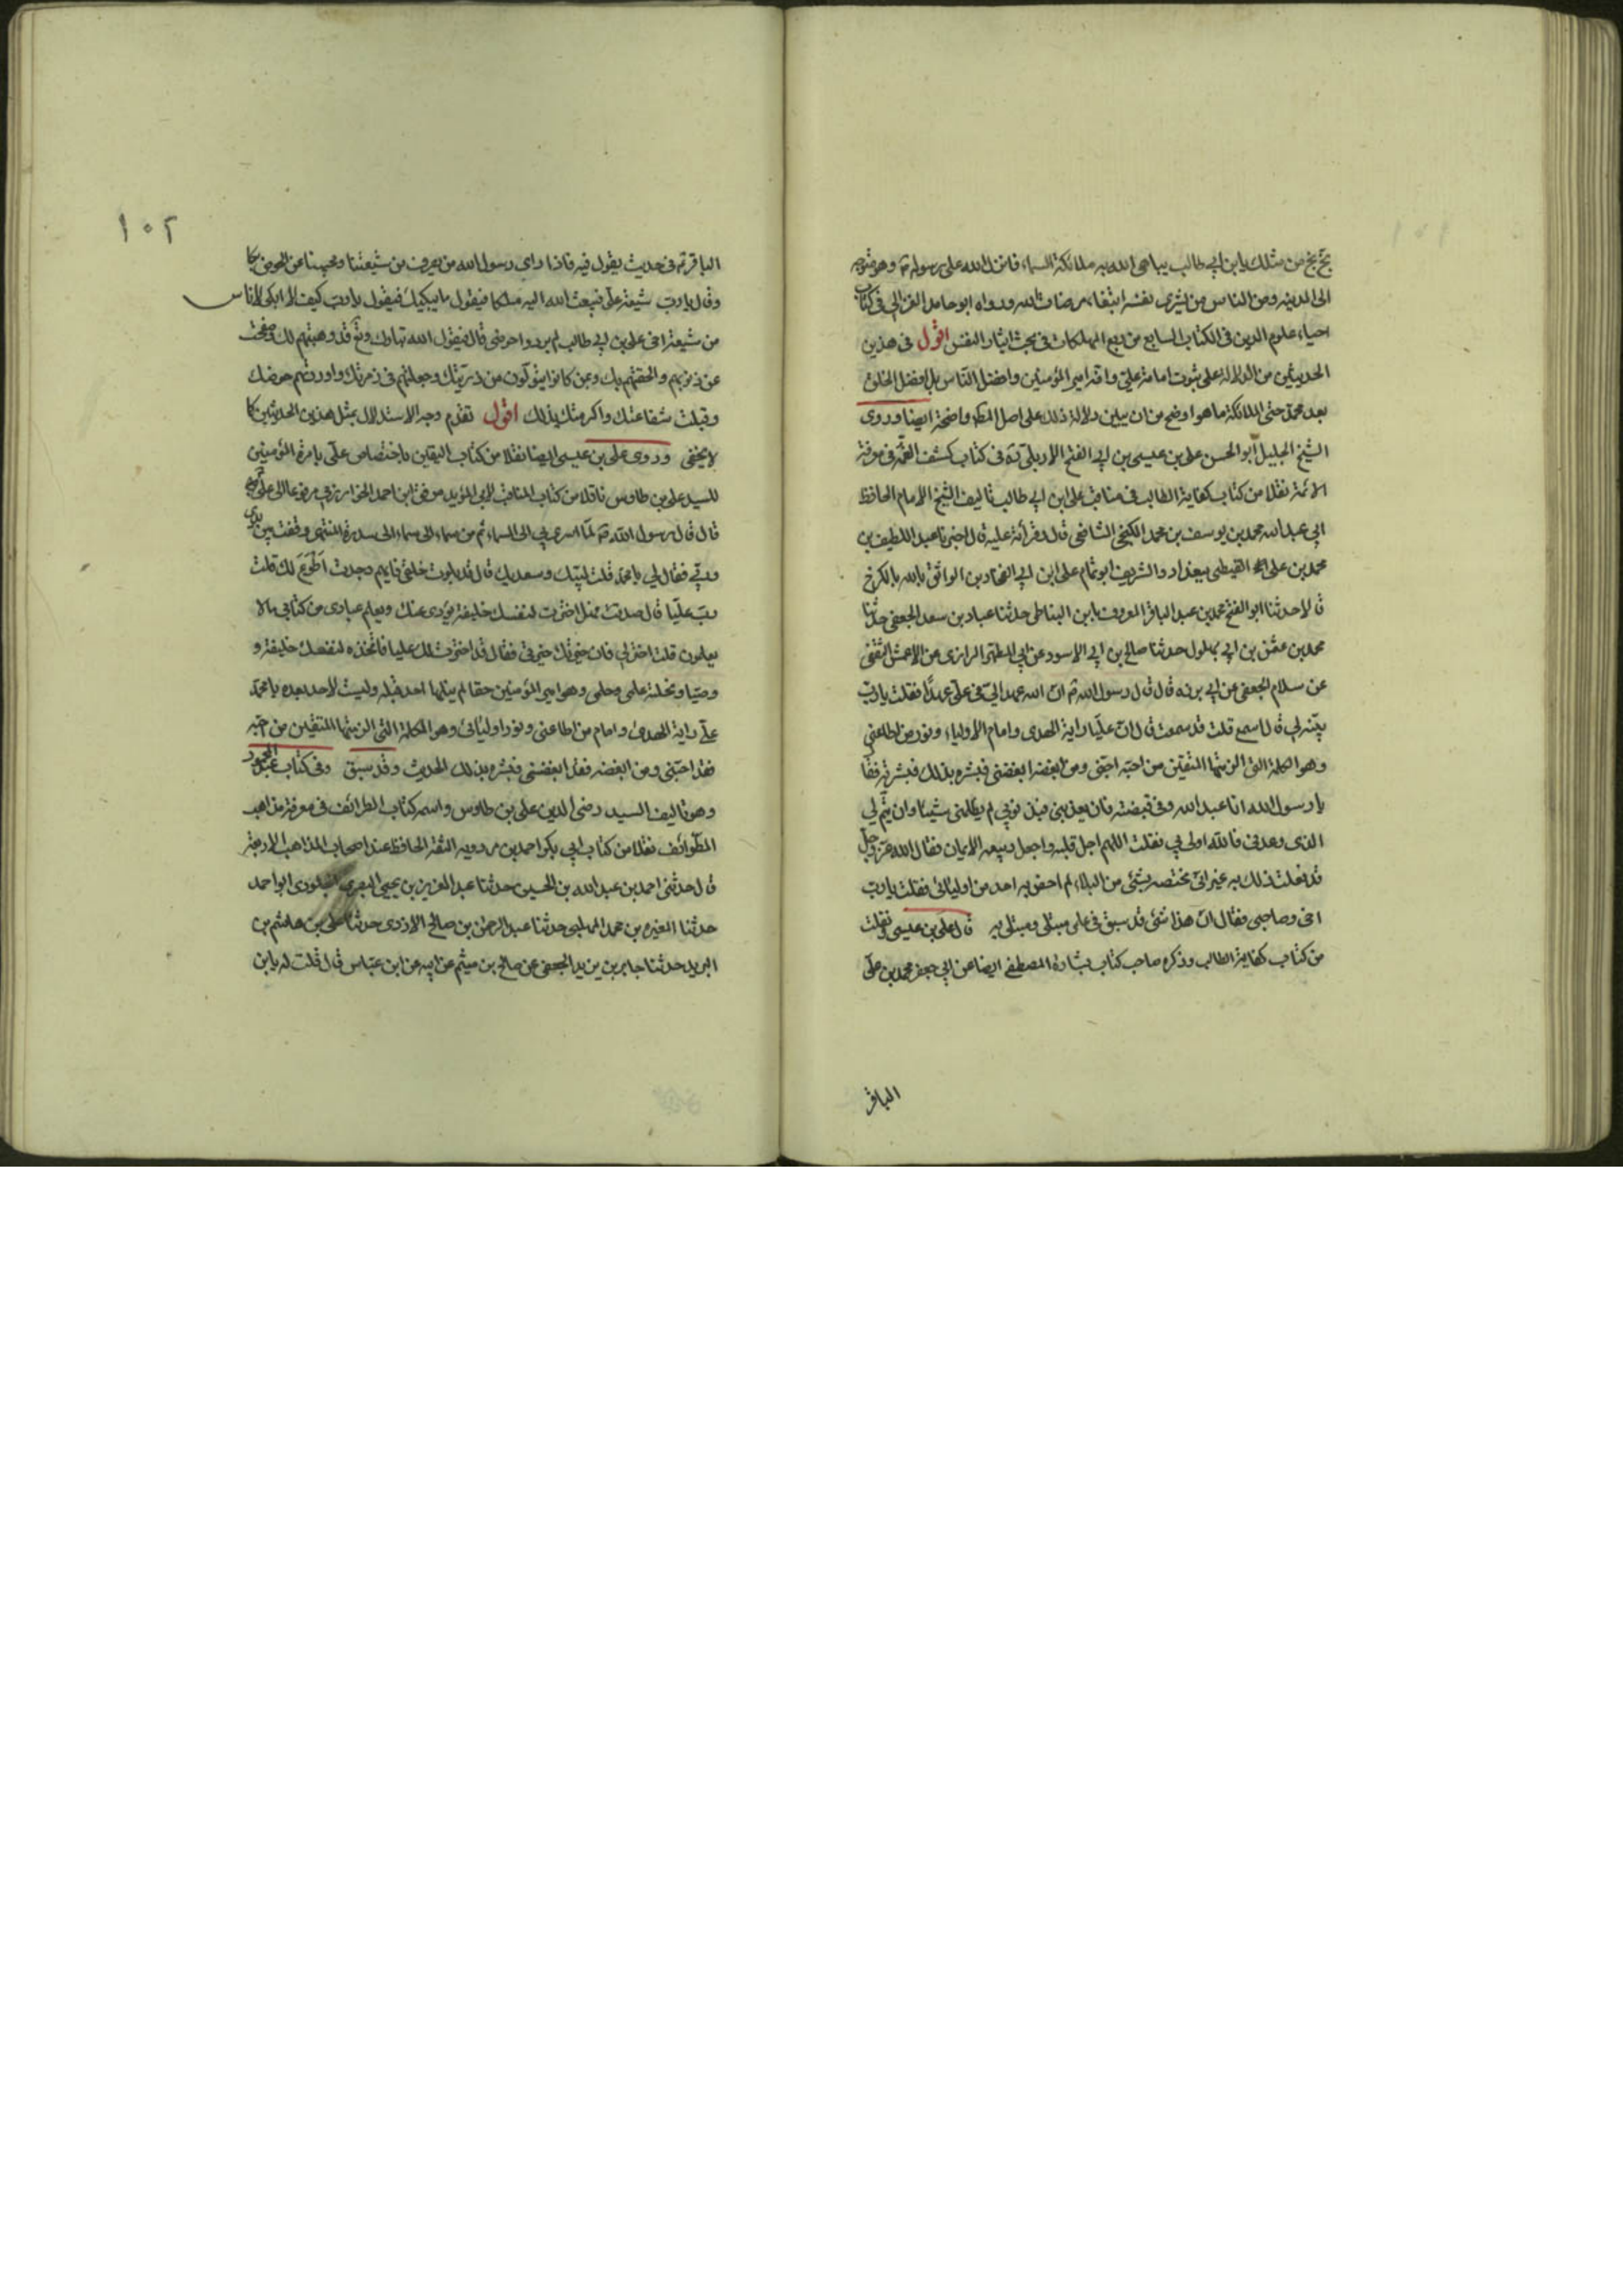 بخ بخ من مثلك يا ابن ابي طالب يباهي الله به ملائكة السماء فانزل الله على رسوله ص وهو متوجه
الى المدينه ومن الناس من يشرى نفسه ابتغاء مرضات الله ورواه ابو حامد الغزالي في كتاب
احياء علوم الدين في الكتاب السابع من ربع المهلكات في بحث ايثار النفس اقول في هذين
الحديثين من الدلالة على ثبوت امامة علي وانه امير المؤمنين وافضل الناس بل افضل الخلق
بعد محمد حتى الملائكة ما هو اوضح من ان يبين دلالة ذلك على اصل المط واضحة ايضا وروى
الشيخ الجليل ابو الحسن علي بن عيسى بن ابي الفتح الاربلي ره في كتاب كشف الغمه في معرفة
الائمة نقلا من كتاب كفاية الطالب في مناقب علي ابن ابي طالب تاليف الشيخ الامام الحافظ
ابي عبد الله محمد بن يوسف بن محمد الكنجي الشافعي قال قرأته عليه قال اخبرنا عبد اللطيف بن
محمد بن علي القبيطي ببغداد والشريف ابو تمام علي ابن ابي الفخار بن الواثق بالله بالكرخ
قالا حدثنا ابو الفتح محمد بن عبد الباقر المعروف بابن البطاطي حدثنا عباد بن سعد الجعفي حدثنا
محمد بن عثمن بن ابي بهلول حدثنا صالح بن ابي الاسود عن ابي المطهر الرازى عن الاعمش الثقفي
عن سلام الجعفي عن ابي برزه قال قال رسول الله ص ان الله عهد الي في علي عهدا فقلت يا رب
بينه لي قال اسمع قلت قد سمعت قال ان عليا راية الهدى وامام الاولياء ونور من اطاعني
وهو الكلمة التي الزمتها المتقين من احبه احبني ومن ابغضه ابغضني فبشره بذلك فبشرته فقا
يا رسول الله انا عبد الله وفي قبضته فان يعذبني فبذنوبي لم يظلمني شيئا وان يتم لي
الذى وعدني فالله اولى بي فقلت اللهم اجل قلبه واجعل ربيعه الايمان فقال الله عز وجل
قد فعلت ذلك به غير اني مختصه بشئ من البلاء لم اختص به احد من اوليائي فقلت يا رب
اخي وصاحبي فقال ان هذا شئ قد سبق في علمي مبتلى ومبتلى به قال علي بن عيسى ونقلت
من كتاب كفاية الطالب وذكره صاحب كتاب بشارة المصطفى ايضا عن ابي جعفر محمد بن علي
الباقر
١٠٢
الباقر ع في حديث يقول فيه فاذا راى رسول الله من يصرف من شيعتنا ومحبينا عن الحوض بكا
وقال يا رب شيعة علي فيبعث الله اليه ملكا فيقول ما يبكيك فيقول يا رب كيف لا ابكي لاناس
من شيعة اخي علي بن ابي طالب لم يردوا حوضي قال فيقول الله تبارك وتع قد وهبتهم لك وصفحت
عن ذنوبهم والحقتهم بك وبمن كانوا يتولون من ذريتك وجعلتهم في زمرتك واوردتهم حوضك
وقبلت شفاعتك واكرمتك بذلك اقول تقدم وجه الاستدلال بمثل هذين الحديثين كا
لا يخفى وروى علي بن عيسى ايضا نقلا من كتاب اليقين باختصاص علي بامرة المؤمنين
للسيد علي بن طاوس ناقلا من كتاب المناقب لابي المؤيد موفق ابن احمد الخوارزمي مرفوعا الى علي ع
قال قال رسول الله ص لما اسرى بي الى السماء ثم من سماء الى سماء الى سدرة المنتهى وقفت بين يدى
ربي فقال لي يا محمد قلت لبيك وسعديك قال قد بلوت خلقي فايهم وجدت اطوع لك قلت
رب عليا قال صدقت فهل اخترت لنفسك خليفة يؤدى عنك ويعلم عبادى من كتابي مالا
يعلمون قلت اختر لي فان خيرتك خيرتي فقال قد اخترت لك عليا فاتخذه لنفسك خليفة و
وصيا ونحلته علمي وحلمي وهو امير المؤمنين حقا لم ينلها احد قبله وليت لاحد بعده يا محمد
علي راية الهدى وامام من اطاعني ونور اوليائي وهو الكلمة التي الزمتها المتقين من احبه
فقد احبني ومن ابغضه فقد ابغضني فبشره بذلك الحديث وقد سبق وفي كتاب عبد المحمود
وهو تاليف السيد رضي الدين علي بن طاوس واسمه كتاب الطرائف في معرفة مذاهب
الطوائف نقلا من كتاب ابي بكر احمد بن مردويه الثقة الحافظ عند اصحاب المذاهب الاربعة
قال حدثني احمد بن عبد الله بن الحسين حدثنا عبد العزيز بن يحيى البصرى الجلودى ابو احمد
حدثنا المغيره بن محمد المهلبي حدثنا عبد الرحمن بن صالح الازدى حدثنا علي بن هاشم بن
البريد حدثنا جابر بن يزيد الجعفي عن صالح بن ميثم عن ابيه عن ابن عباس قال قلت له يا بن